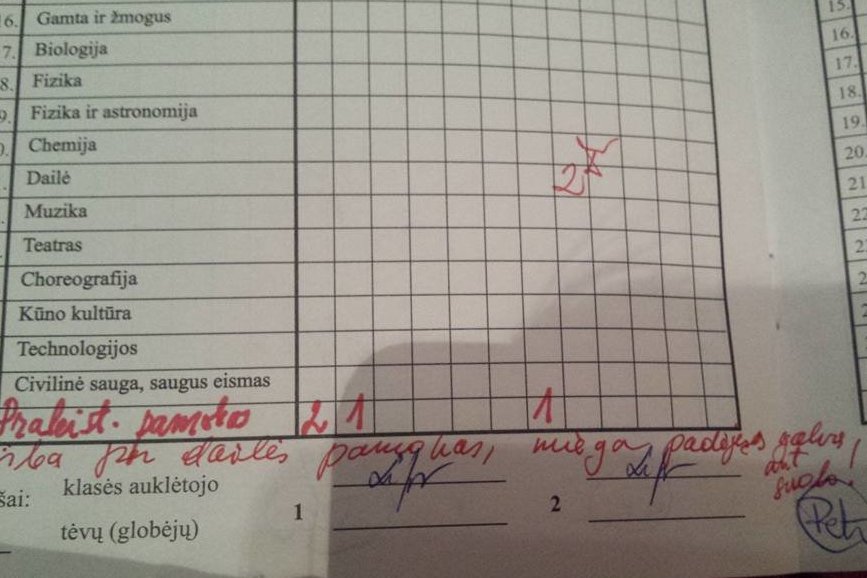 6. Gamta ir žmogus
7. Biologija
8. Fizika
9. Fizika ir astronomija
Chemija
Dailė
2
Muzika
Teatras
Choreografija
Kūno kultūra
Technologijos
Civilinė sauga, saugus eismas
Praleist. pamokos 2 1 1
per dailės pamokas, miega padėjęs galvą
ant
suolo!
šai: klasės auklėtojo
1 2
tėvų (globėjų)
Petr
15.
16.
17.
18.
19.
20.
21
22
2
2